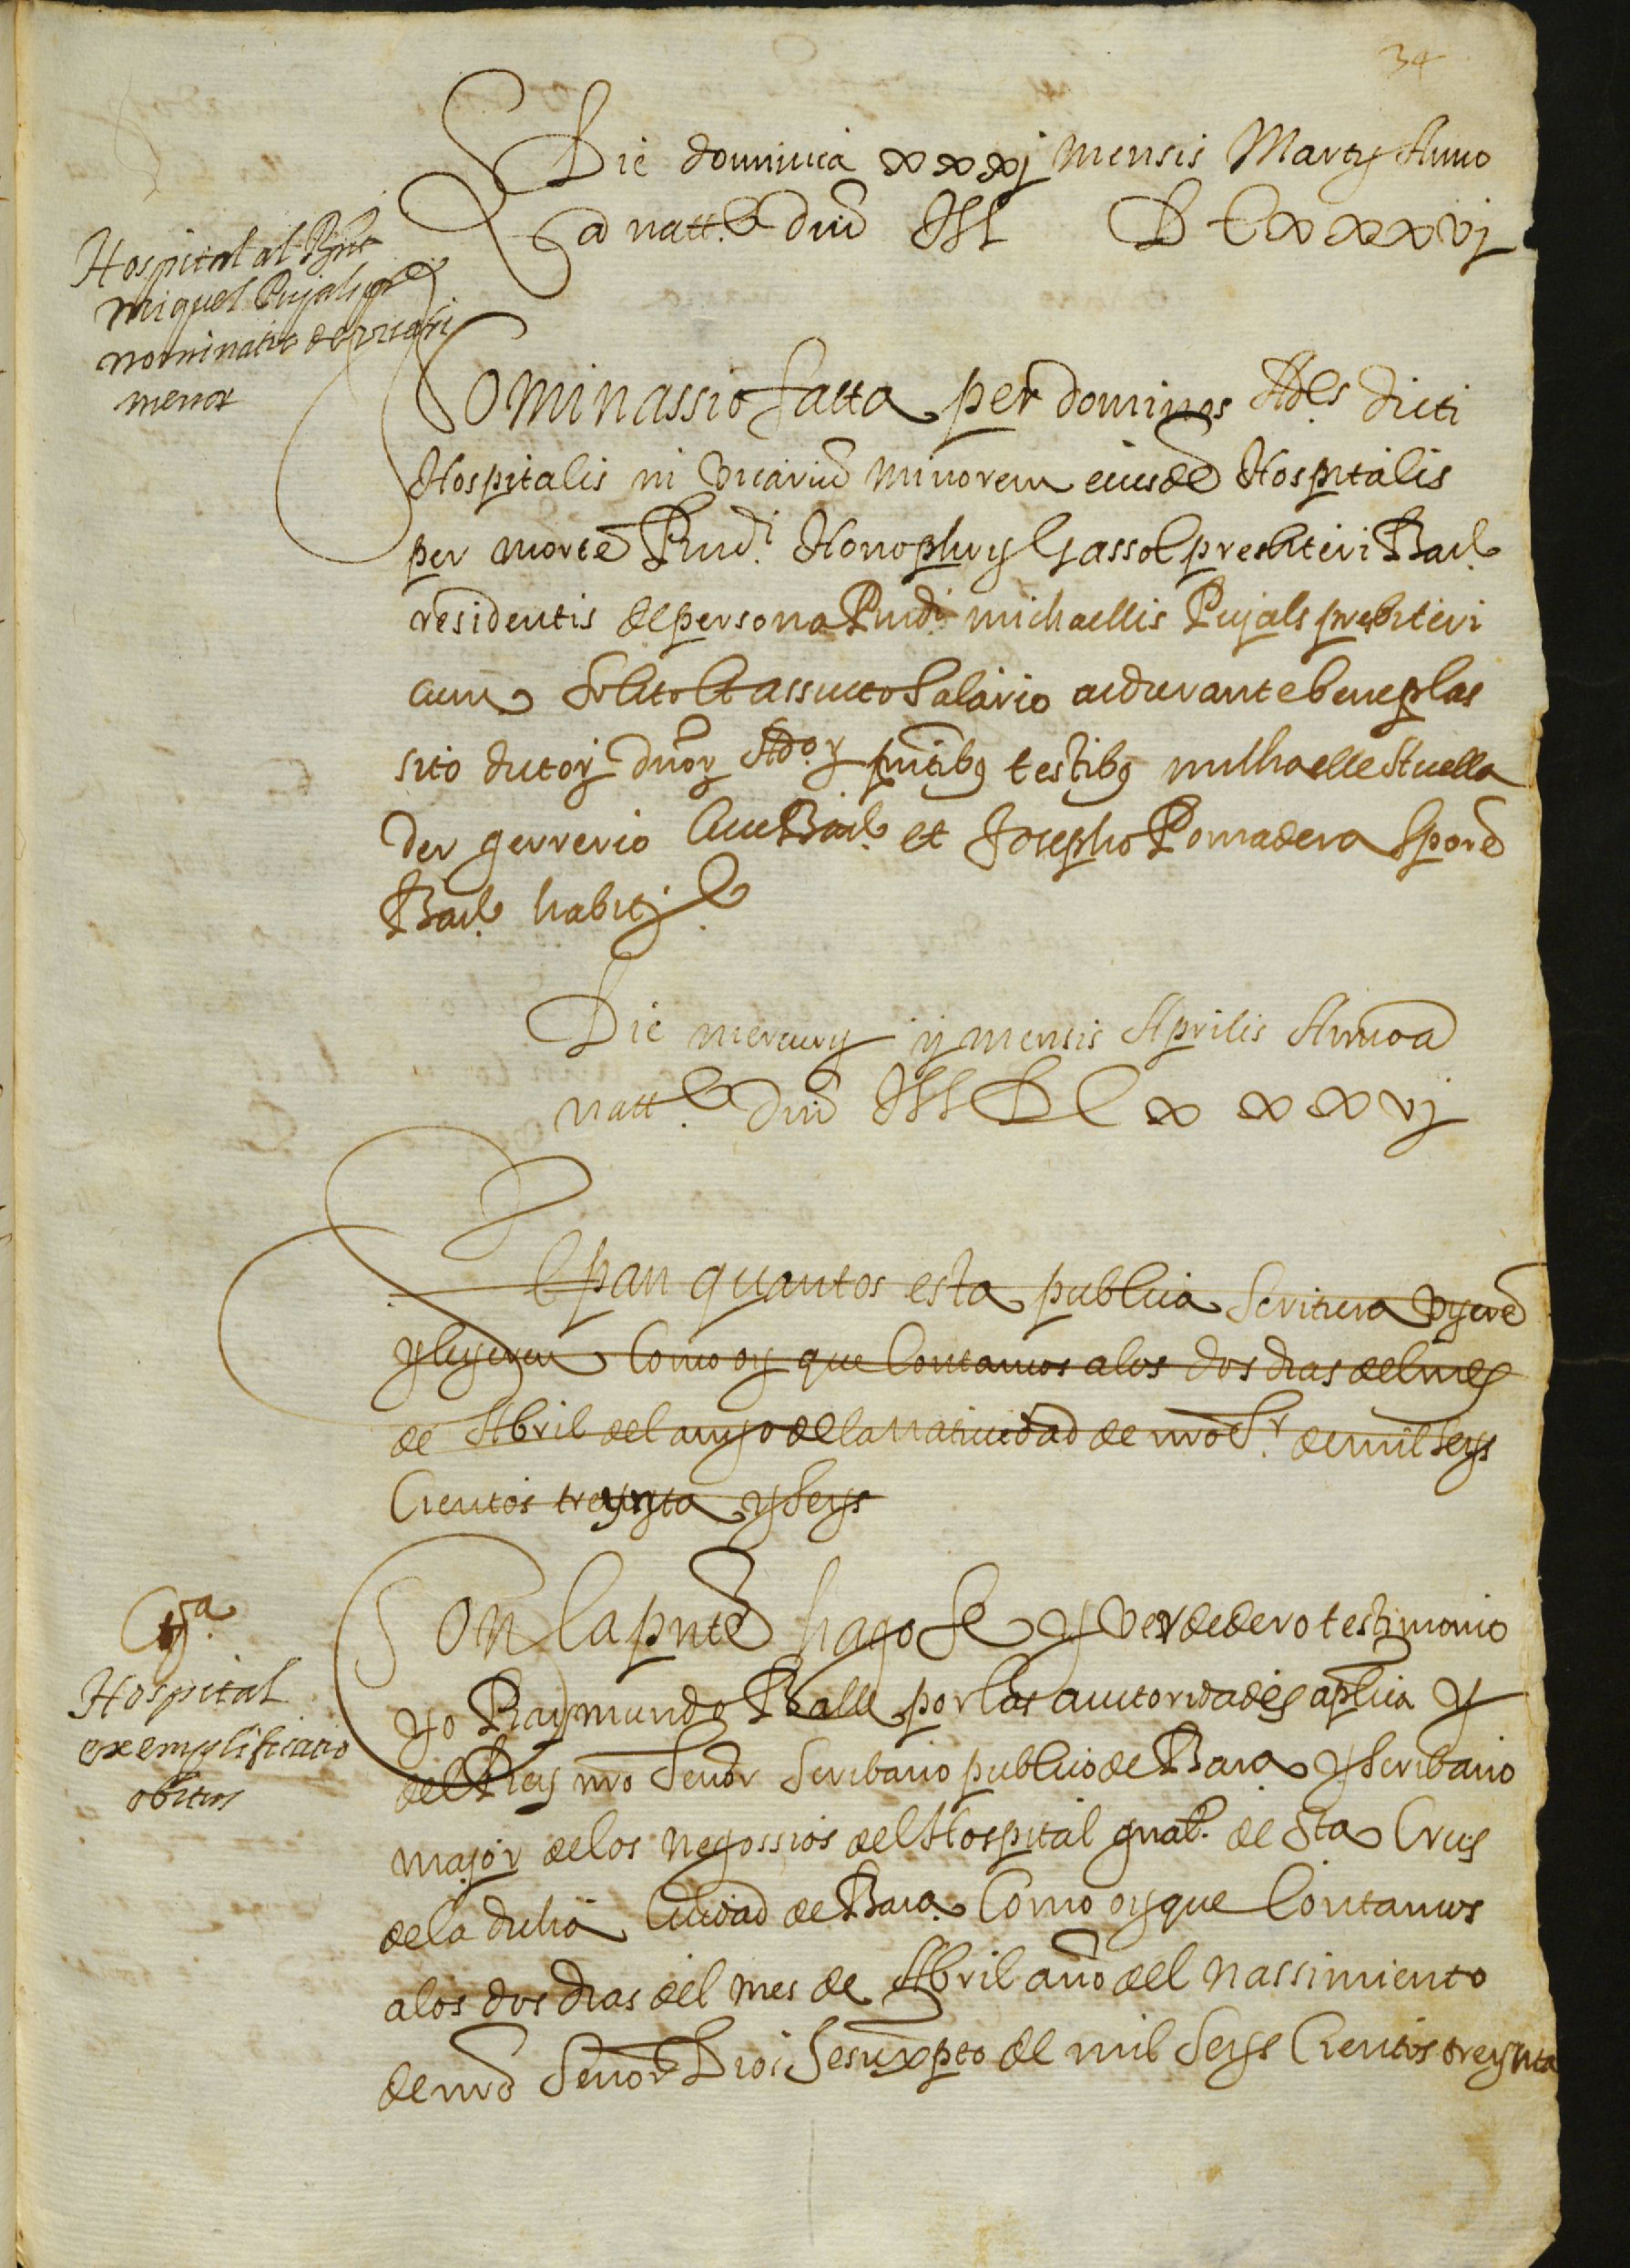 34
Die dominica xxxj mensis Martij Anno
a natt.e dni MDCxxxvj
Hospital al Rnt
miquel Pujals pre
nominatio de vicari
menor
Nominassio fatta per dominos Ad.es dicti
Hospitalis in vicariu minorem eiusde Hospitalis
per morte Rndi. Honophrij Gassol presbiteri Bar.e
residentis de persona Rndi. michaellis Pujals presbiteri
cum solito et assueto salario ac durante beneplas
sito dictor dnor Ador pntibus testibus michaelle Stuella
der gerrerio Cive Bar.e et Josepho Pomadera Spore
Bar.e habit.
Die mercurij ij mensis Aprilis Anno a
natt.e dni MDCxxxvj
Sepan quantos esta publica scritura vyere
y leyeren Como oy que Contamos a los dos dias del mes
de Abril del anyo de la natividad de nro Sr. de mil seys
Cientos treynta y seys
Cta.
Hospital
exemplificatio
obitus
Con la pnte hago fe y verdedero testimonio
yo Raymundo Balle por las auctoridades aplica y
del Rey nro Señor Scribano publico de Bara y scribano
major de los negossios del Hospital gnal. de Sta Crus
de la dicha Ciudad de Bara. Como oy que Contamos
a los dos dias del mes de Abril año del nassimiento
de nro Señor Dios Jesuxpto de mil seys Cientos treynta